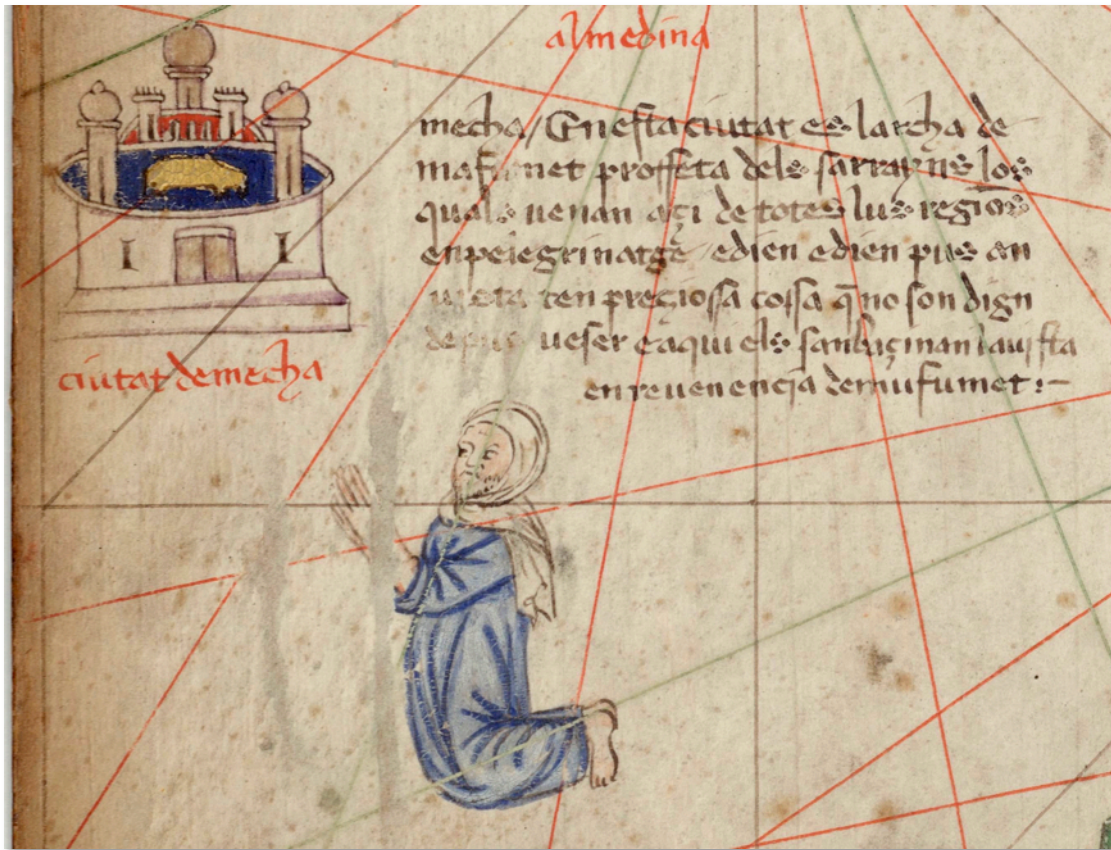 almedina
mecha / En esta ciutat es larcha de
mafumet proffeta dels sarrayns los
quals uenan açi de totes lus regiōs
en pelegrinatge edien edien pus an
uista ten preçiossa cossa q̄ no son dign
de pus ueser e aqui els sanbaçinan la uista
en reuenencia de mufumet :-
ciutat de mecha